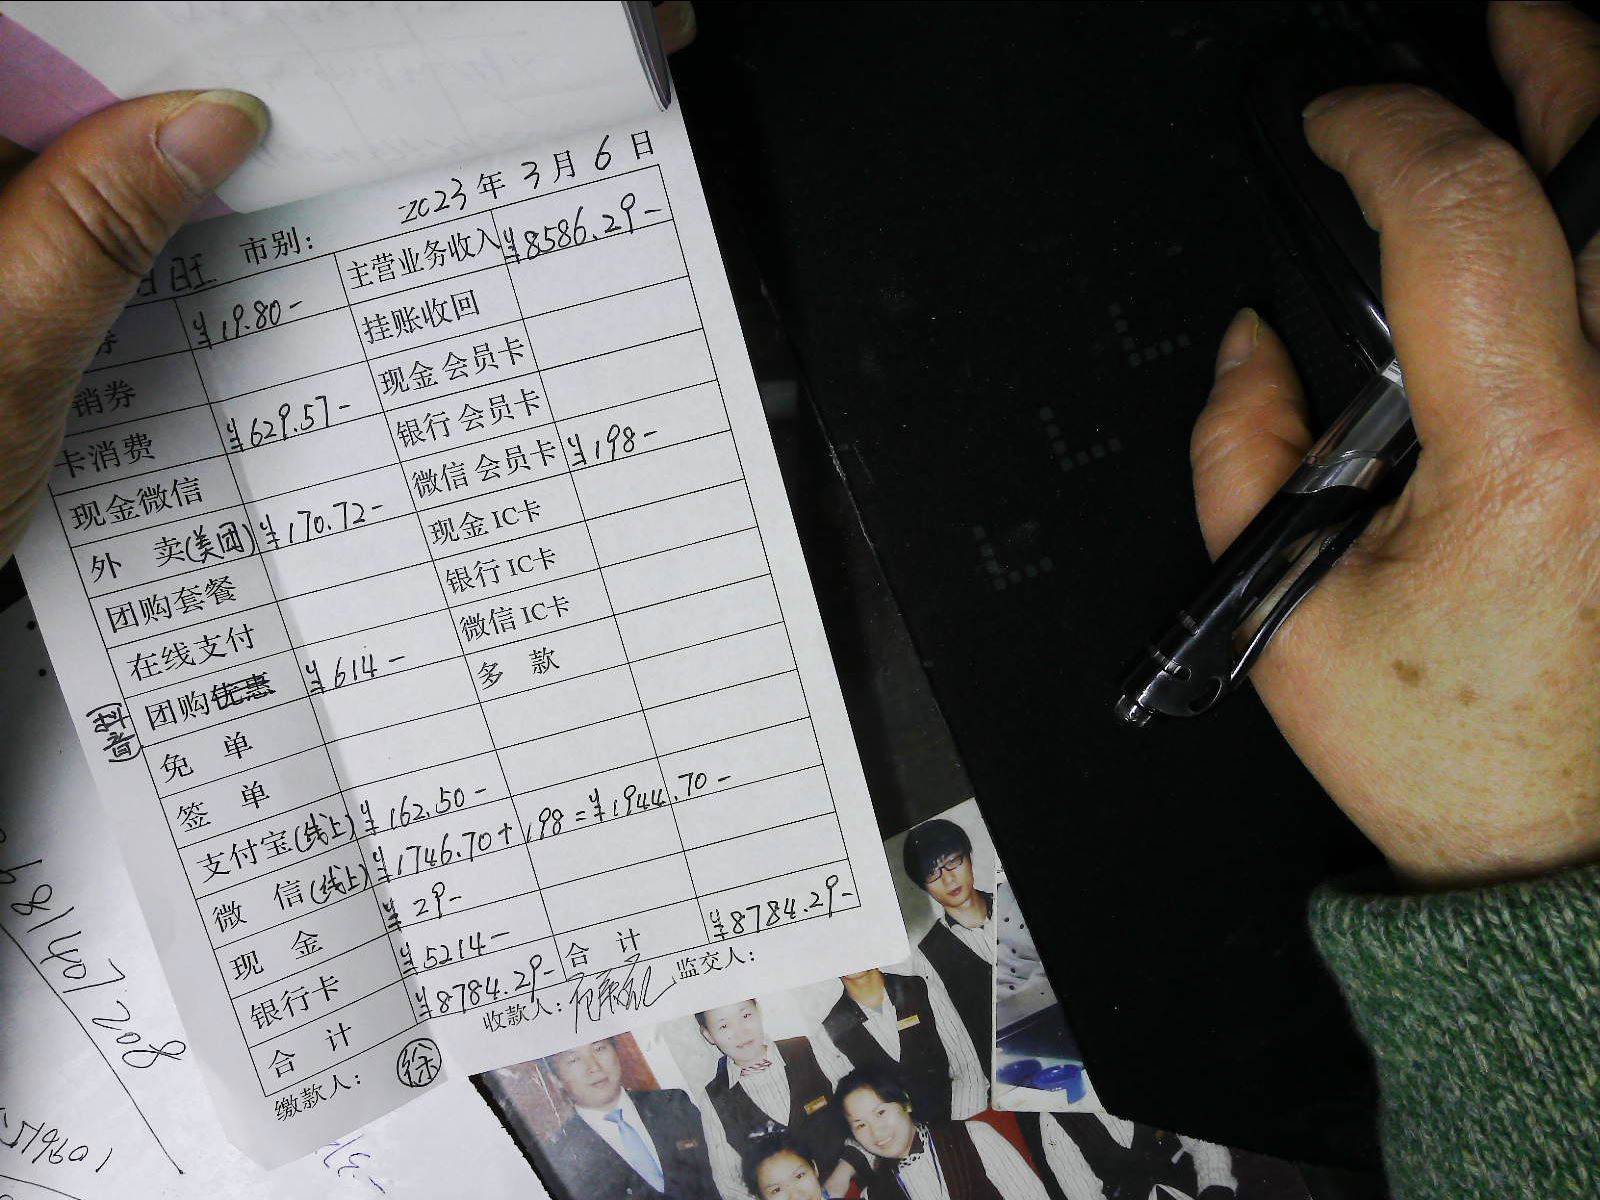 2023年3月6日
旺 市别:
券 ¥19.80- 主营业务收入 ¥8586.29-
销券 挂账收回
卡消费 ¥629.57- 现金会员卡
现金微信 银行会员卡
外 卖(美团) ¥170.72- 微信会员卡 ¥198-
团购套餐 现金IC卡
在线支付 银行IC卡
团购优惠 (抖音) ¥614- 微信IC卡
免 单 多 款
签 单
支付宝(线上) ¥162.50-
微 信(线上) ¥1746.70+198=¥1944.70-
现 金 ¥29-
银行卡 ¥5214-
合 计 ¥8784.29- 合 计 ¥8784.29-
缴款人: 徐 收款人: 监交人: